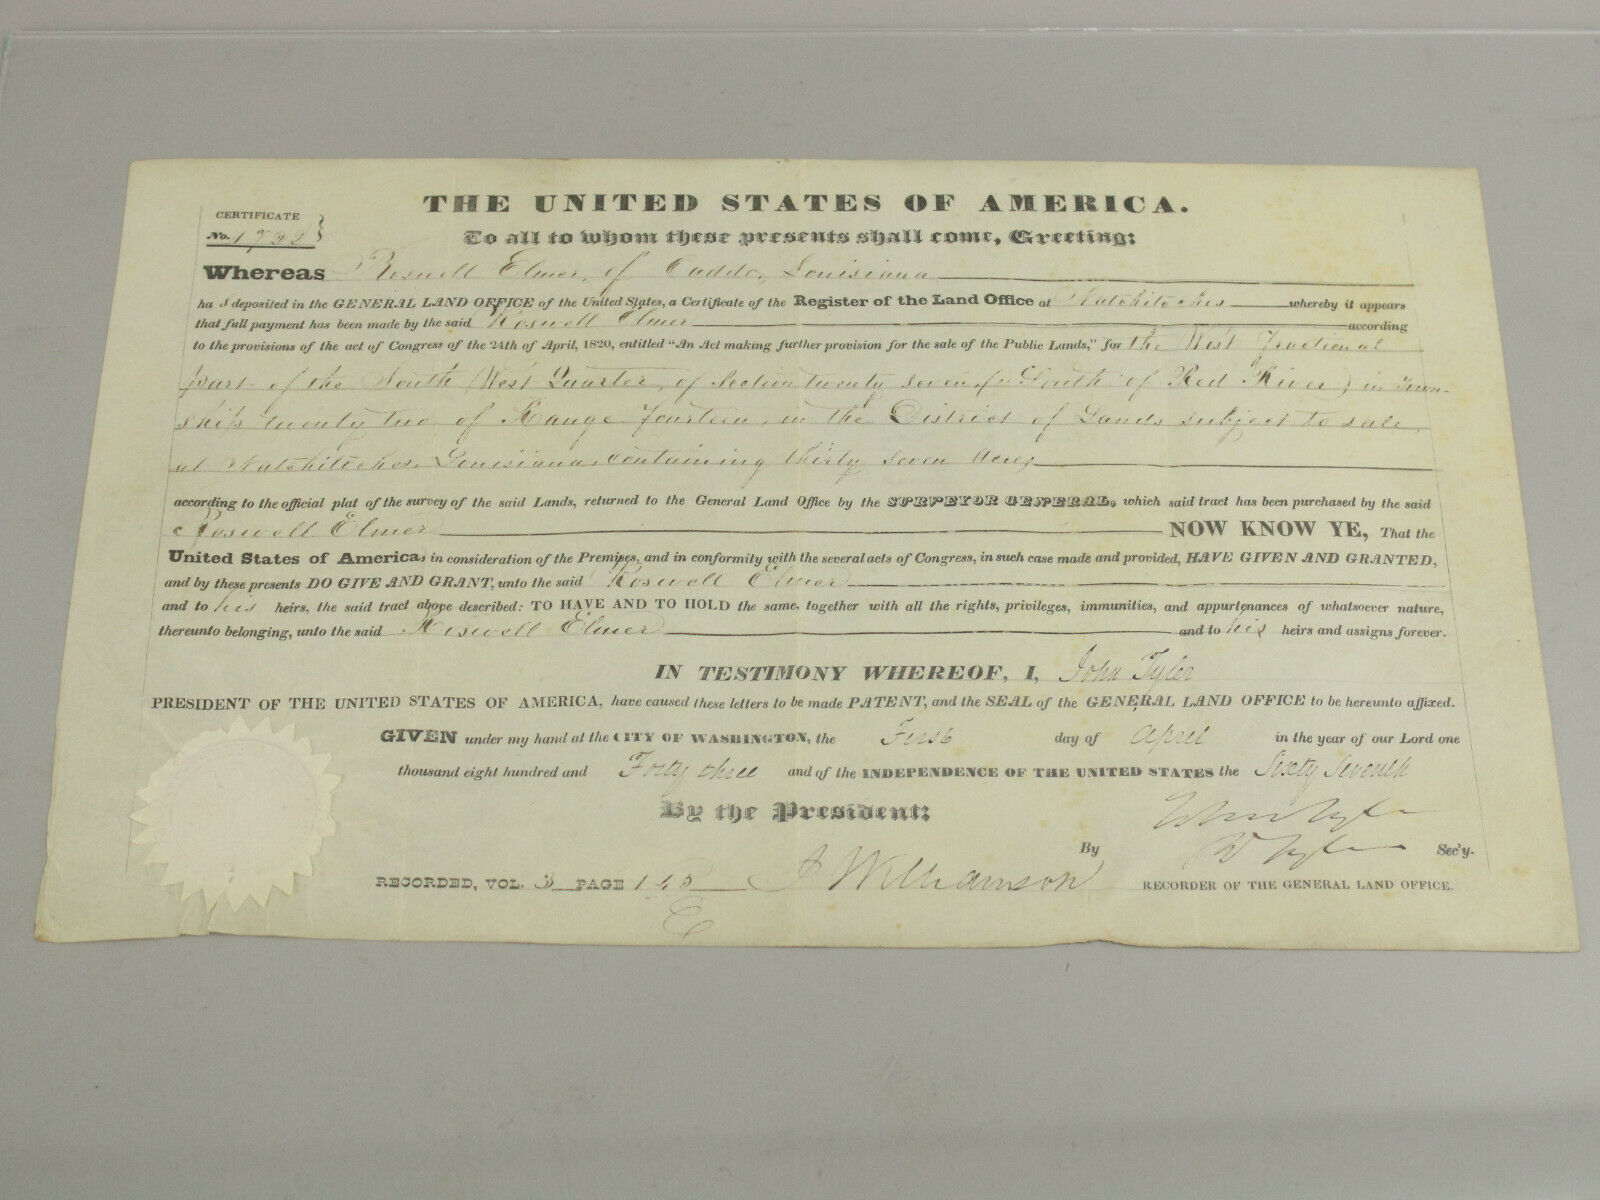 THE UNITED STATES OF AMERICA.
CERTIFICATE
No.
To all to whom these presents shall come, Greeting:
Whereas Roswell Elmer, of Caddo, Louisiana
ha s deposited in the GENERAL LAND OFFICE of the United States, a Certificate of the Register of the Land Office at Natchitoches whereby it appears
that full payment has been made by the said Roswell Elmer according
to the provisions of the act of Congress of the 24th of April, 1820, entitled "An Act making further provision for the sale of the Public Lands," for the West Fractional
part of the South West Quarter, of Section twenty seven, (South of Red River) in Town-
ship twenty two, of Range Fourteen, in the District of Lands subject to sale,
at Natchitoches, Louisiana, containing thirty seven Acres
according to the official plat of the survey of the said Lands, returned to the General Land Office by the SURVEYOR GENERAL, which said tract has been purchased by the said
Roswell Elmer NOW KNOW YE, That the
United States of America, in consideration of the Premises, and in conformity with the several acts of Congress, in such case made and provided, HAVE GIVEN AND GRANTED,
and by these presents DO GIVE AND GRANT, unto the said Roswell Elmer
and to his heirs, the said tract above described: TO HAVE AND TO HOLD the same, together with all the rights, privileges, immunities, and appurtenances of whatsoever nature,
thereunto belonging, unto the said Roswell Elmer and to his heirs and assigns forever.
IN TESTIMONY WHEREOF, I, John Tyler
PRESIDENT OF THE UNITED STATES OF AMERICA, have caused these letters to be made PATENT, and the SEAL of the GENERAL LAND OFFICE to be hereunto affixed.
GIVEN under my hand at the CITY OF WASHINGTON, the First day of April in the year of our Lord one
thousand eight hundred and Forty three and of the INDEPENDENCE OF THE UNITED STATES the Sixty Seventh
By the President: John Tyler
By R Tyler Sec'y.
RECORDED, VOL. 3 PAGE J Williamson RECORDER OF THE GENERAL LAND OFFICE.